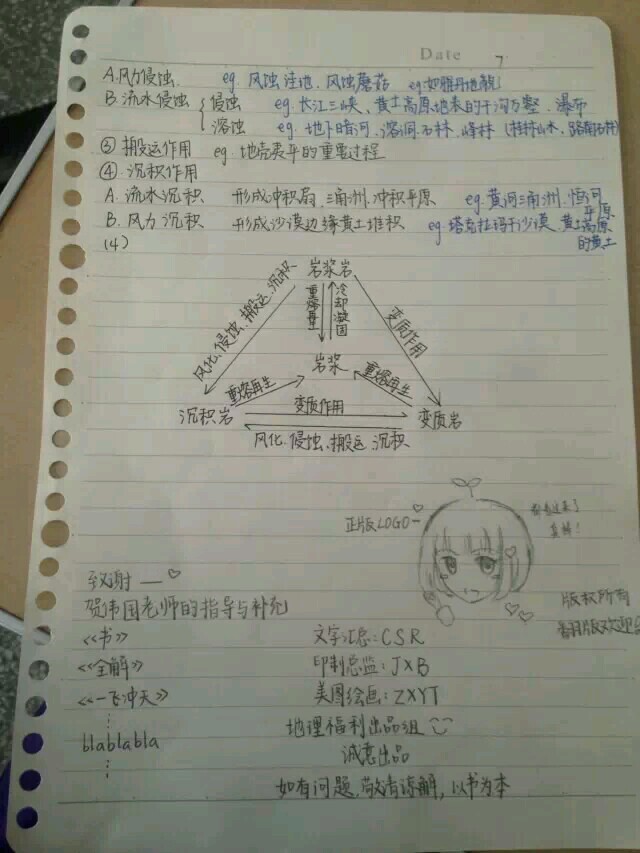 Date 7
A.风力侵蚀 eg. 风蚀洼地、风蚀蘑菇 eg.如雅丹地貌
B.流水侵蚀 { 侵蚀 eg. 长江三峡、黄土高原地表的千沟万壑、瀑布
溶蚀 eg. 地下暗河、溶洞、石林、峰林 (桂林山水、路南石林)
③ 搬运作用 eg. 地壳夷平的重要过程
④. 沉积作用
A. 流水沉积 形成冲积扇、三角洲、冲积平原 eg.黄河三角洲、恒河平原
B. 风力沉积 形成沙漠边缘黄土堆积 eg.塔克拉玛干沙漠、黄土高原的黄土
(4)
岩浆岩
风化、侵蚀、搬运、沉积
重熔再生
冷却凝固
变质作用
岩浆
重熔再生
重熔再生
沉积岩
变质作用
变质岩
风化、侵蚀、搬运、沉积
正版LOGO
版权所有
翻版欢迎
致谢 — ♡
贺伟国老师的指导与补充
《书》 文字汇总:CSR
《全解》 印制总监:JXB
《一飞冲天》 美图绘画:ZXYT
⋮ 地理福利出品组
blablabla 诚意出品
⋮ 如有问题,敬请谅解,以书为本